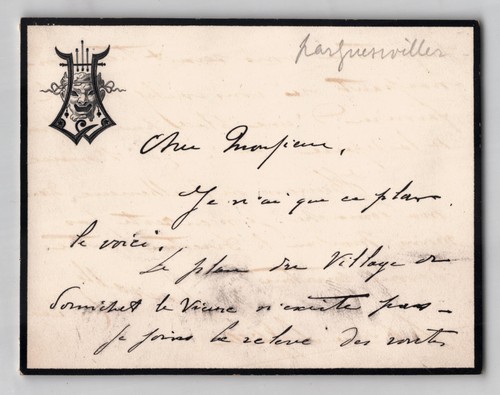 Cher Monsieur,
Je n'ai que ce plan.
le voici.
Le plan du Village de
le Vieux n'existe pas —
Je joins le relevé des routes